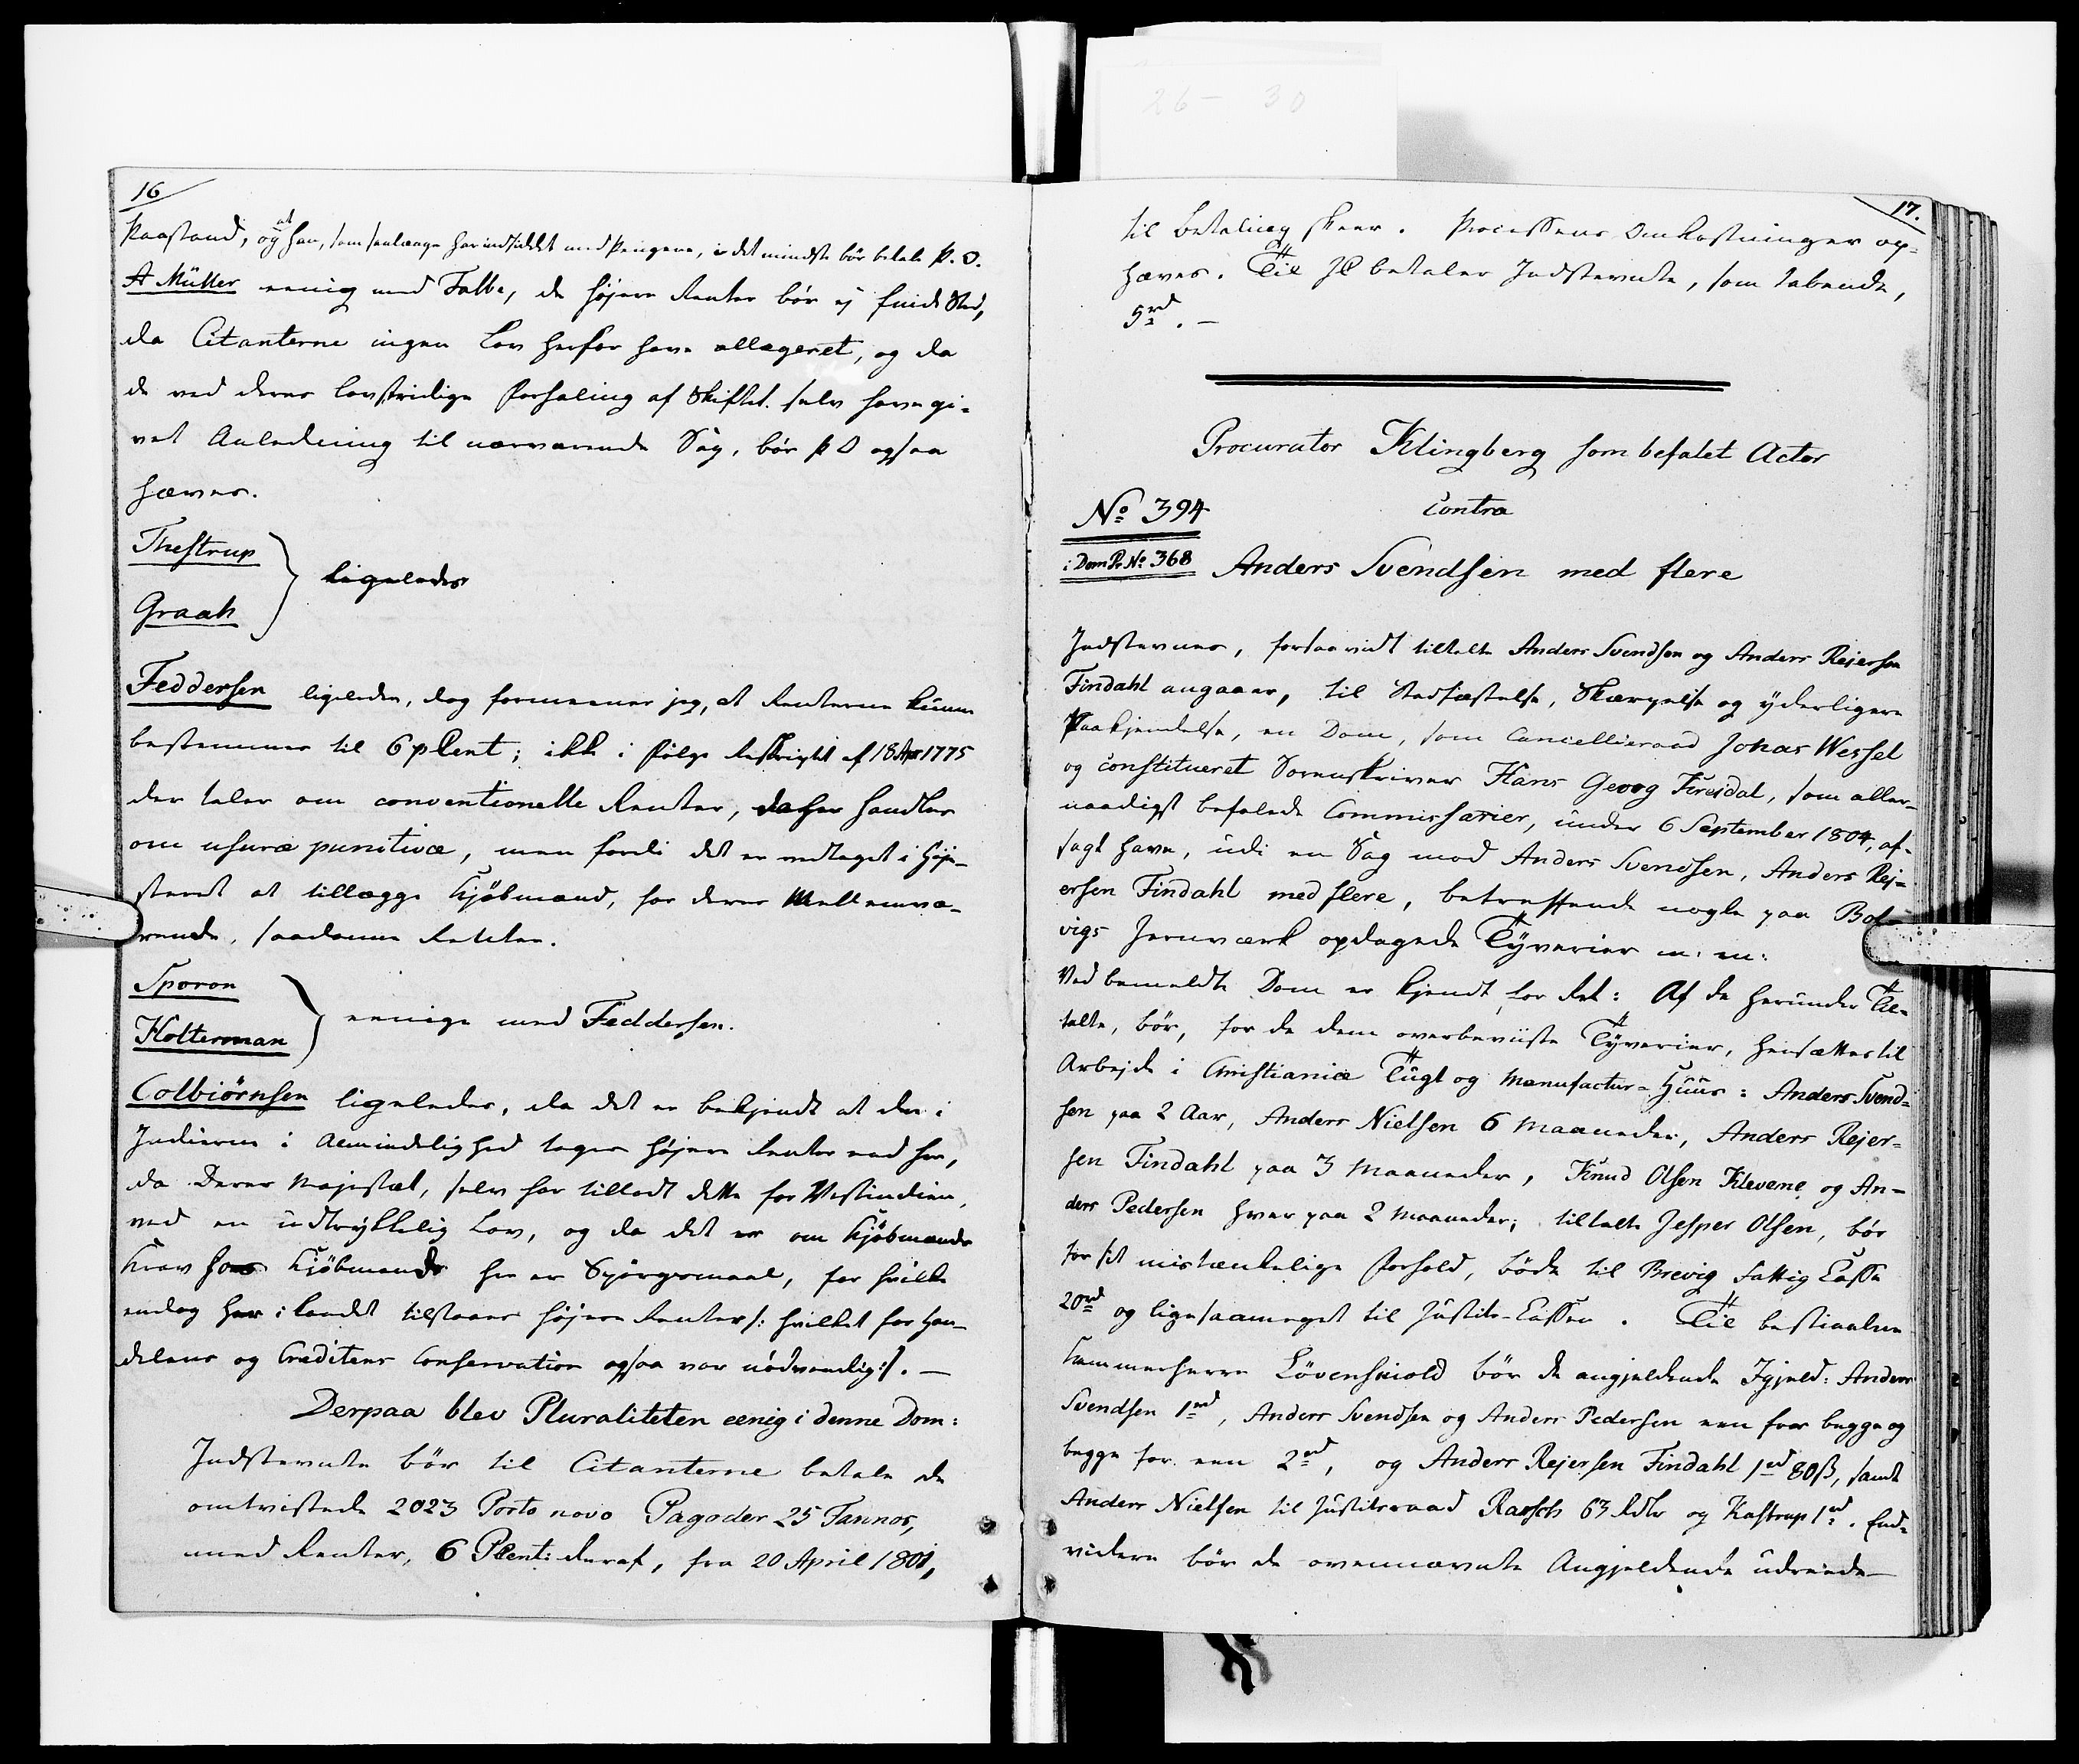 16
Paastand, og at han, som saalænge har indsiddet med Pengene, i det mindste bør betale P. O.
A Müller eenig med Falbe, de højere Renter bør ej finde Sted,
da Citanterne ingen Lov herfor have allegeret, og da
de ved deres lovstridige Forhaling af Skiftet selv have gi-
vet Anledning til nærværende Sag, bør P O ogsaa
hæves.
Thestrup
Graah
ligeledes
Feddersen ligeledes, dog formeener jeg, at Renterne kunne
bestemmes til 6 pCent; ikke i Følge Rescriptet af 18 Apr 1775
der taler om conventionelle Renter, da her handles
om usuræ punitivæ, men fordi det er vedtaget i Høje-
steret at tillægge Kjøbmænd, for deres Mellemvæ-
rende, saadanne Renter.
Sporon
Holterman
eenige med Feddersen.
Colbiørnsen ligeledes, da det er bekjendt at der i
Indierne i Almindelighed tages højere Renter end her,
da Deres Majestæt, selv har tilladt dette for Vestindien,
ved en udtrykkelig Lov, og da det er om Kjøbmands
Krav hos Kjøbmænd her er Spørgsmaal, for hvilke
endog her i Landet tilstaaes højere Renter /: hvilket for Han-
delens og Creditens Conservation ogsaa var nødvendig :/. —
Derpaa blev Pluraliteten eenig i denne Dom:
Indstevnte bør til Citanterne betale de
omtvistede 2023 Porto novo Pagoder 25 Fannos,
med Renter, 6 PCent: deraf, fra 20 April 1801,
17.
til Betaling skeer. Processens Omkostninger op-
hæves. Til JC betaler Indstevnte, som tabende,
5 rd. —
Procurator Klingberg som befalet Actor
No 394
contra
i Dom Pr. No. 368
Anders Svendsen med flere
Indstevner, forsaavidt tiltalte Anders Svendsen og Anders Rejersen
Findahl angaaer, til Stadfæstelse, Skærpelse og yderligere
Paakjendelse, en Dom, som Cancellieraad Johas Wessel
og constitueret Sorenskriver Hans Georg Fireidal, som aller-
naadigst befalede Commissarier, under 6 September 1804, af-
sagt have, udi en Sag mod Anders Svendsen, Anders Rej-
ersen Findahl med flere, betreffende nogle paa Bol-
vigs Jernværk opdagede Tyverier m: m:
Ved bemeldte Dom er kjendt for Ret: Af de herunder Til-
talte, bør, for de dem overbeviiste Tyverier, hensættes til
Arbejde i Christianiæ Tugt og Manufactur-Huus: Anders Svend-
sen paa 2 Aar, Anders Nielsen 6 Maaneder, Anders Rejer-
sen Findahl paa 3 Maaneder, Knud Olsen Klevene og An-
ders Pedersen hver paa 2 Maaneder; tiltalte Jesper Olsen, bør
for sit mistænkelige Forhold, bøde til Brevig Fattig Casse
20 rd og ligesaameget til Justits-Cassen. Til bestiaalne
Kammerherre Løvenskiold bør de angjeldende Igjeld: Anders
Svendsen 1 rd, Anders Svendsen og Anders Pedersen een for begge og
begge for een 2 rd, og Anders Rejersen Findahl 1 rd 80 ß, samt
Anders Nielsen til Justitsraad Rasch 63 Rdlr og Kastrup 1 rd. End-
videre bør de ovennævnte Angjeldende udreede